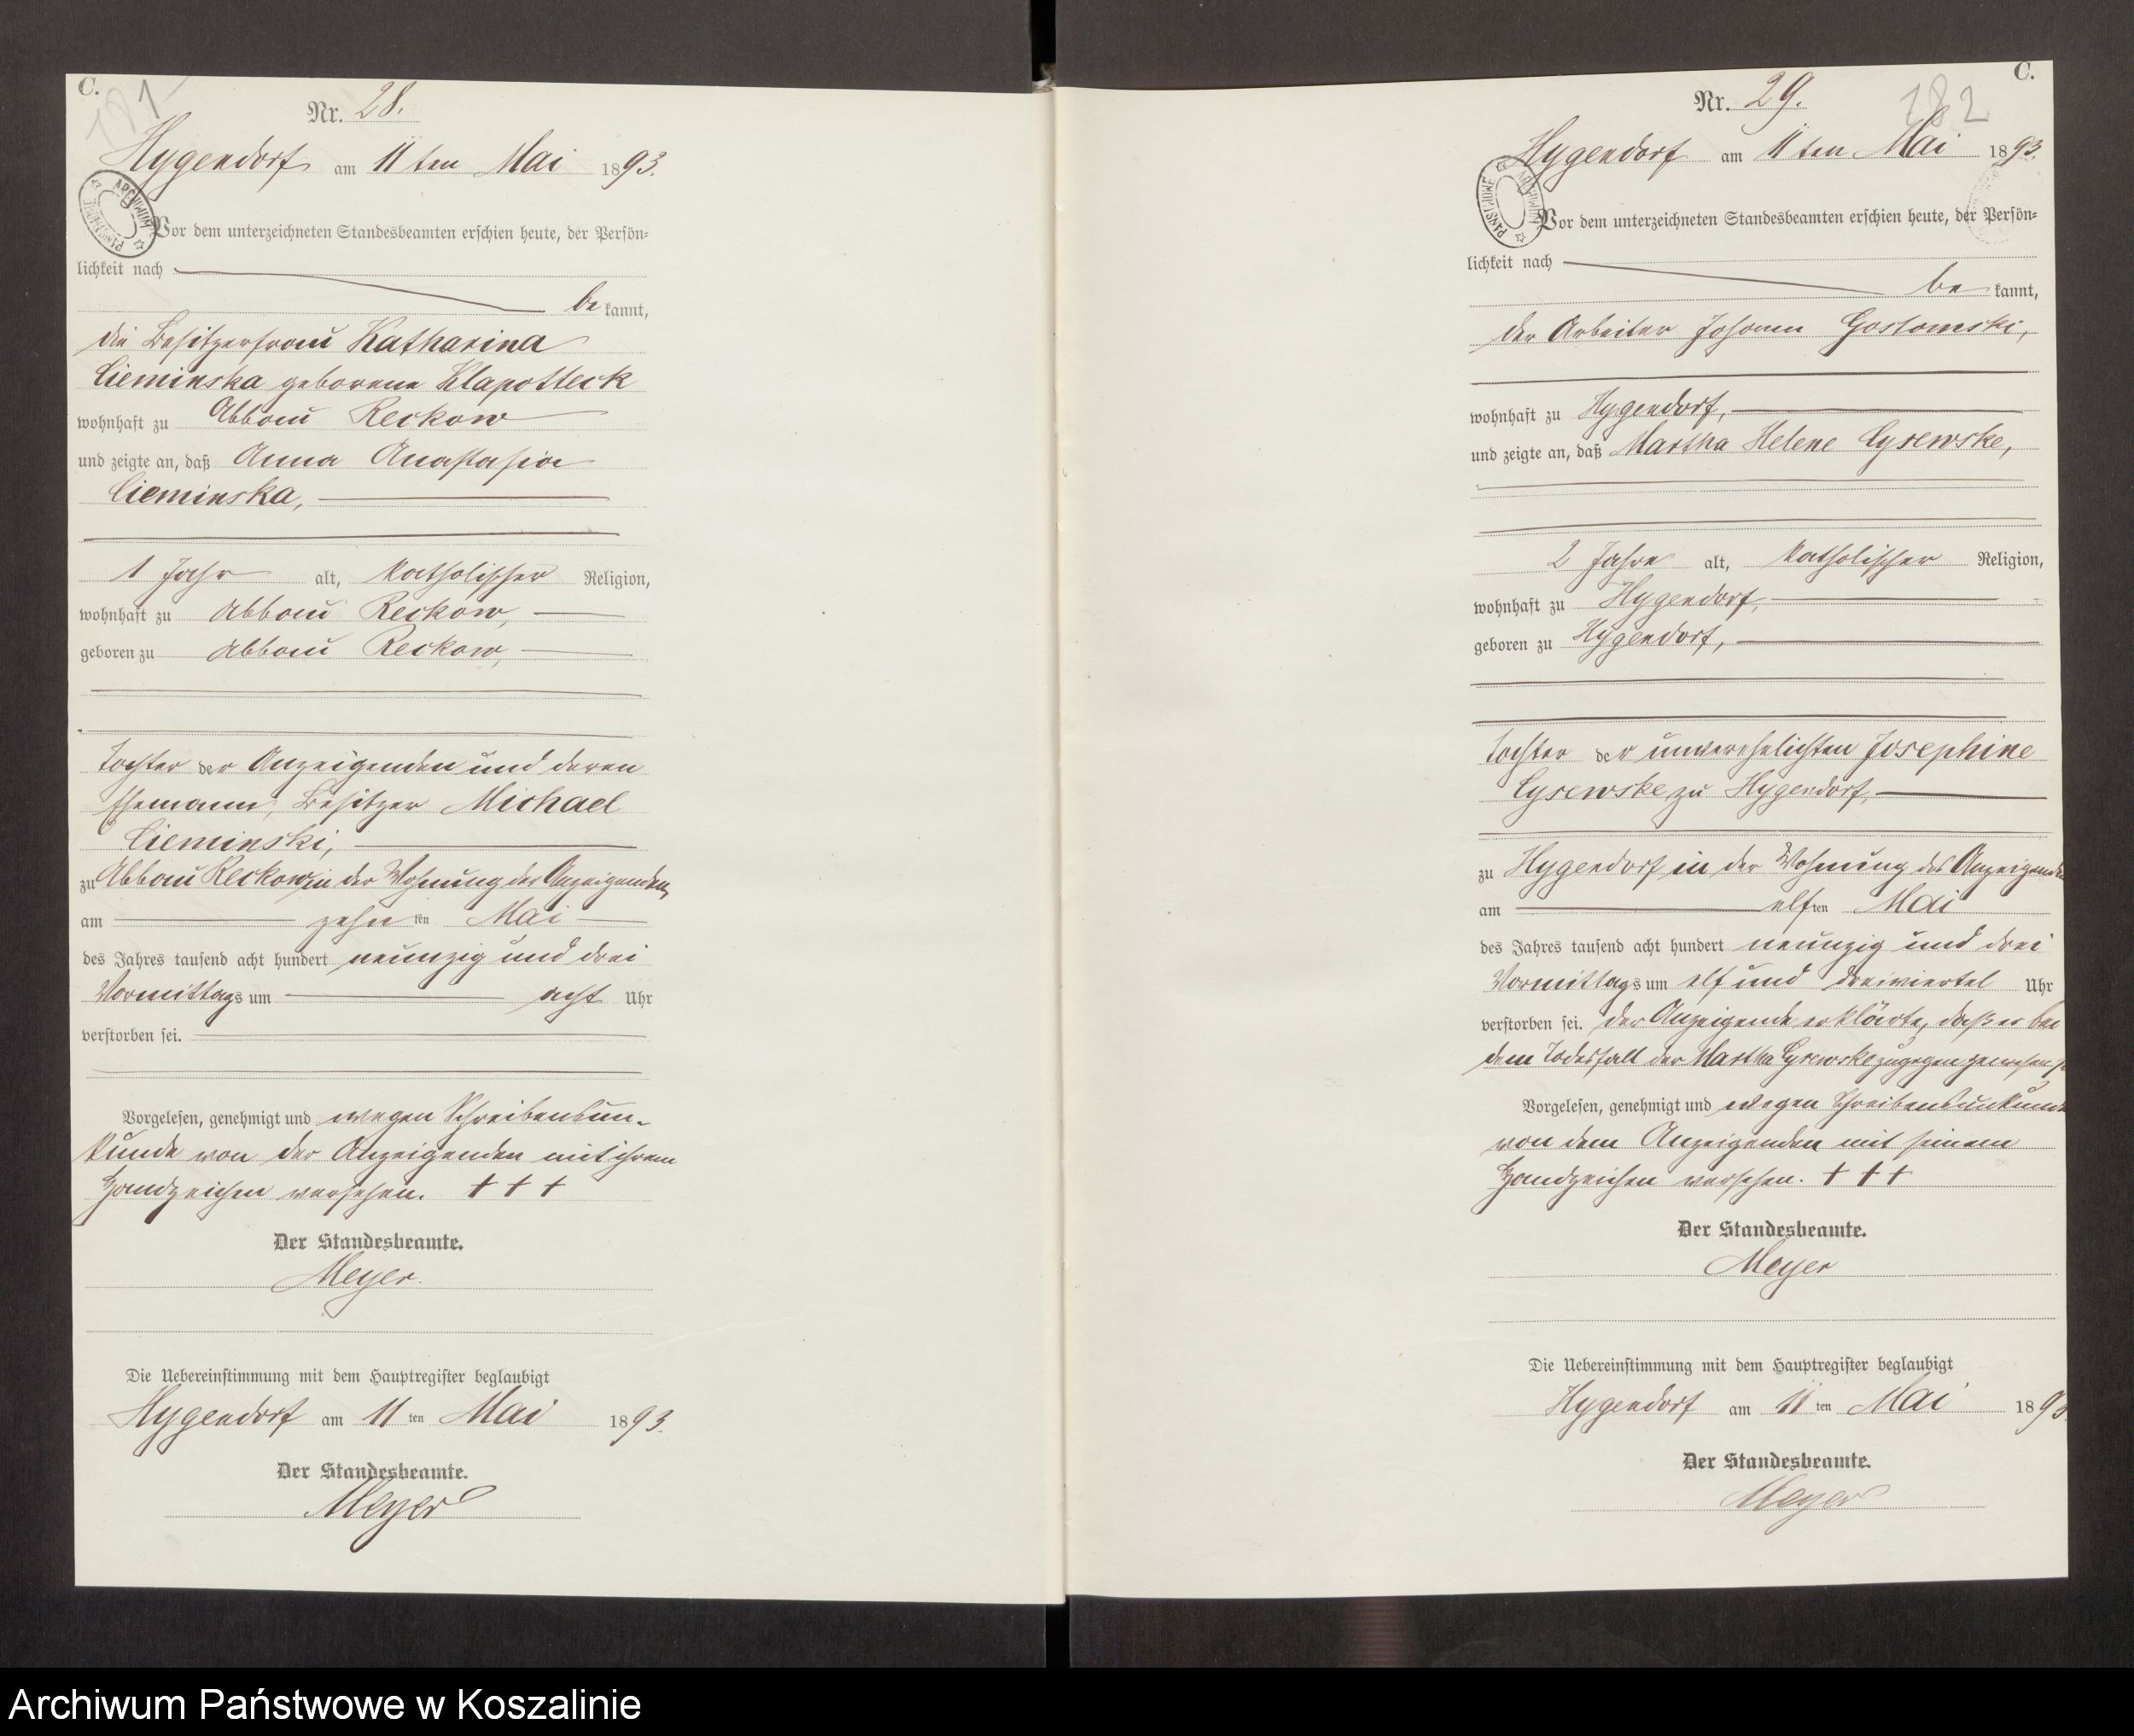 C.
181
Nr. 28.
Hygendorf am 11ten Mai 1893.
Vor dem unterzeichneten Standesbeamten erschien heute, der Persön-
lichkeit nach
be kannt,
die Besitzerfrau Katharina
Cieminska geborene Klapotteck
wohnhaft zu Abbau Reckow
und zeigte an, daß Anna Anastasia
Cieminska,
1 Jahr alt, katholischer Religion,
wohnhaft zu Abbau Reckow,
geboren zu Abbau Reckow,
Tochter der Anzeigenden und deren
Ehemann, Besitzer Michael
Cieminski,
zu Abbau Reckow in der Wohnung der Anzeigenden
am zehn ten Mai
des Jahres tausend acht hundert neunzig und drei
Vormittags um acht Uhr
verstorben sei.
Vorgelesen, genehmigt und wegen Schreibensun-
kunde von der Anzeigenden mit ihrem
Handzeichen versehen. + + +
Der Standesbeamte.
Meyer.
Die Uebereinstimmung mit dem Hauptregister beglaubigt
Hygendorf am 11 ten Mai 1893.
Der Standesbeamte.
Meyer
C.
182
Nr. 29.
Hygendorf am 11ten Mai 1893.
Vor dem unterzeichneten Standesbeamten erschien heute, der Persön-
lichkeit nach
be kannt,
der Arbeiter Johann Gostomski,
wohnhaft zu Hygendorf,
und zeigte an, daß Martha Helene Cysewske,
2 Jahre alt, katholischer Religion,
wohnhaft zu Hygendorf,
geboren zu Hygendorf,
Tochter der unverehelichten Josephine
Cysewske zu Hygendorf,
zu Hygendorf in der Wohnung des Anzeigenden
am elf ten Mai
des Jahres tausend acht hundert neunzig und drei
Vormittags um elf und dreiviertel Uhr
verstorben sei. Der Anzeigende erklärte, daß er bei
dem Todesfall der Martha Cysewske zugegen gewesen
Vorgelesen, genehmigt und wegen Schreibensunkunde
von dem Anzeigenden mit seinem
Handzeichen versehen. + + +
Der Standesbeamte.
Meyer
Die Uebereinstimmung mit dem Hauptregister beglaubigt
Hygendorf am 11 ten Mai 1893
Der Standesbeamte.
Meyer
ARCHIWUM PAŃSTWOWE
ARCHIWUM PAŃSTWOWE
Archiwum Państwowe w Koszalinie